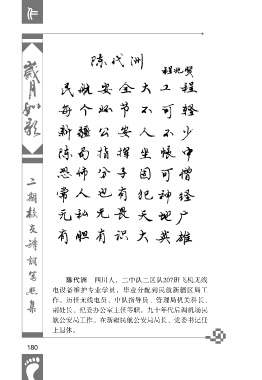 岁月如歌
二期校友诗词书画集
陈代洲
程兆贤
民航安全大工程
每个环节不可轻
新疆公安人不少
陈局指挥坐帐中
恐怖分子图可憎
常人也有犯神经
无私无畏天地广
有胆有识大英雄
陈代洲 四川人,二中队二区队207班飞机无线
电设备维护专业学员,毕业分配到民航新疆区局工
作。历任无线电员、中队指导员、管理局机关科长、
副处长、纪委办公室主任等职。九十年代后调机场民
航公安局工作。在新疆民航公安局局长、党委书记任
上退休。
180